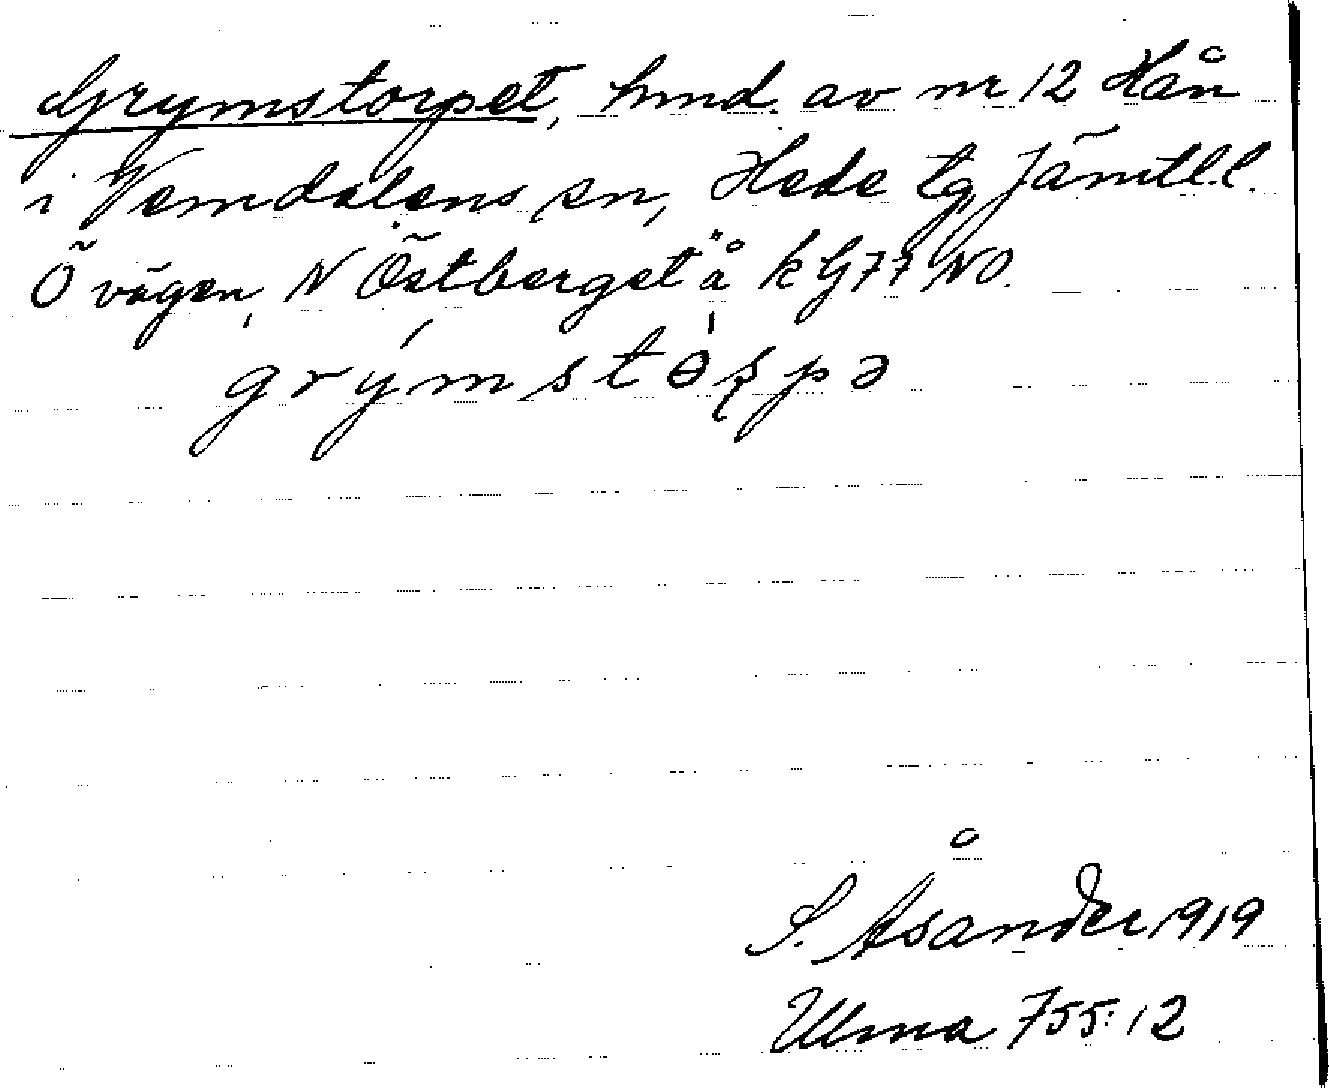 Grymstorpet, hmd. av nr 12 Hån
i Vemdalens sn, Hede tg Jämtl.l.
Ö vägen, N Östberget å k G77 NO.
S. Åsander 1919
Ulma 755:12